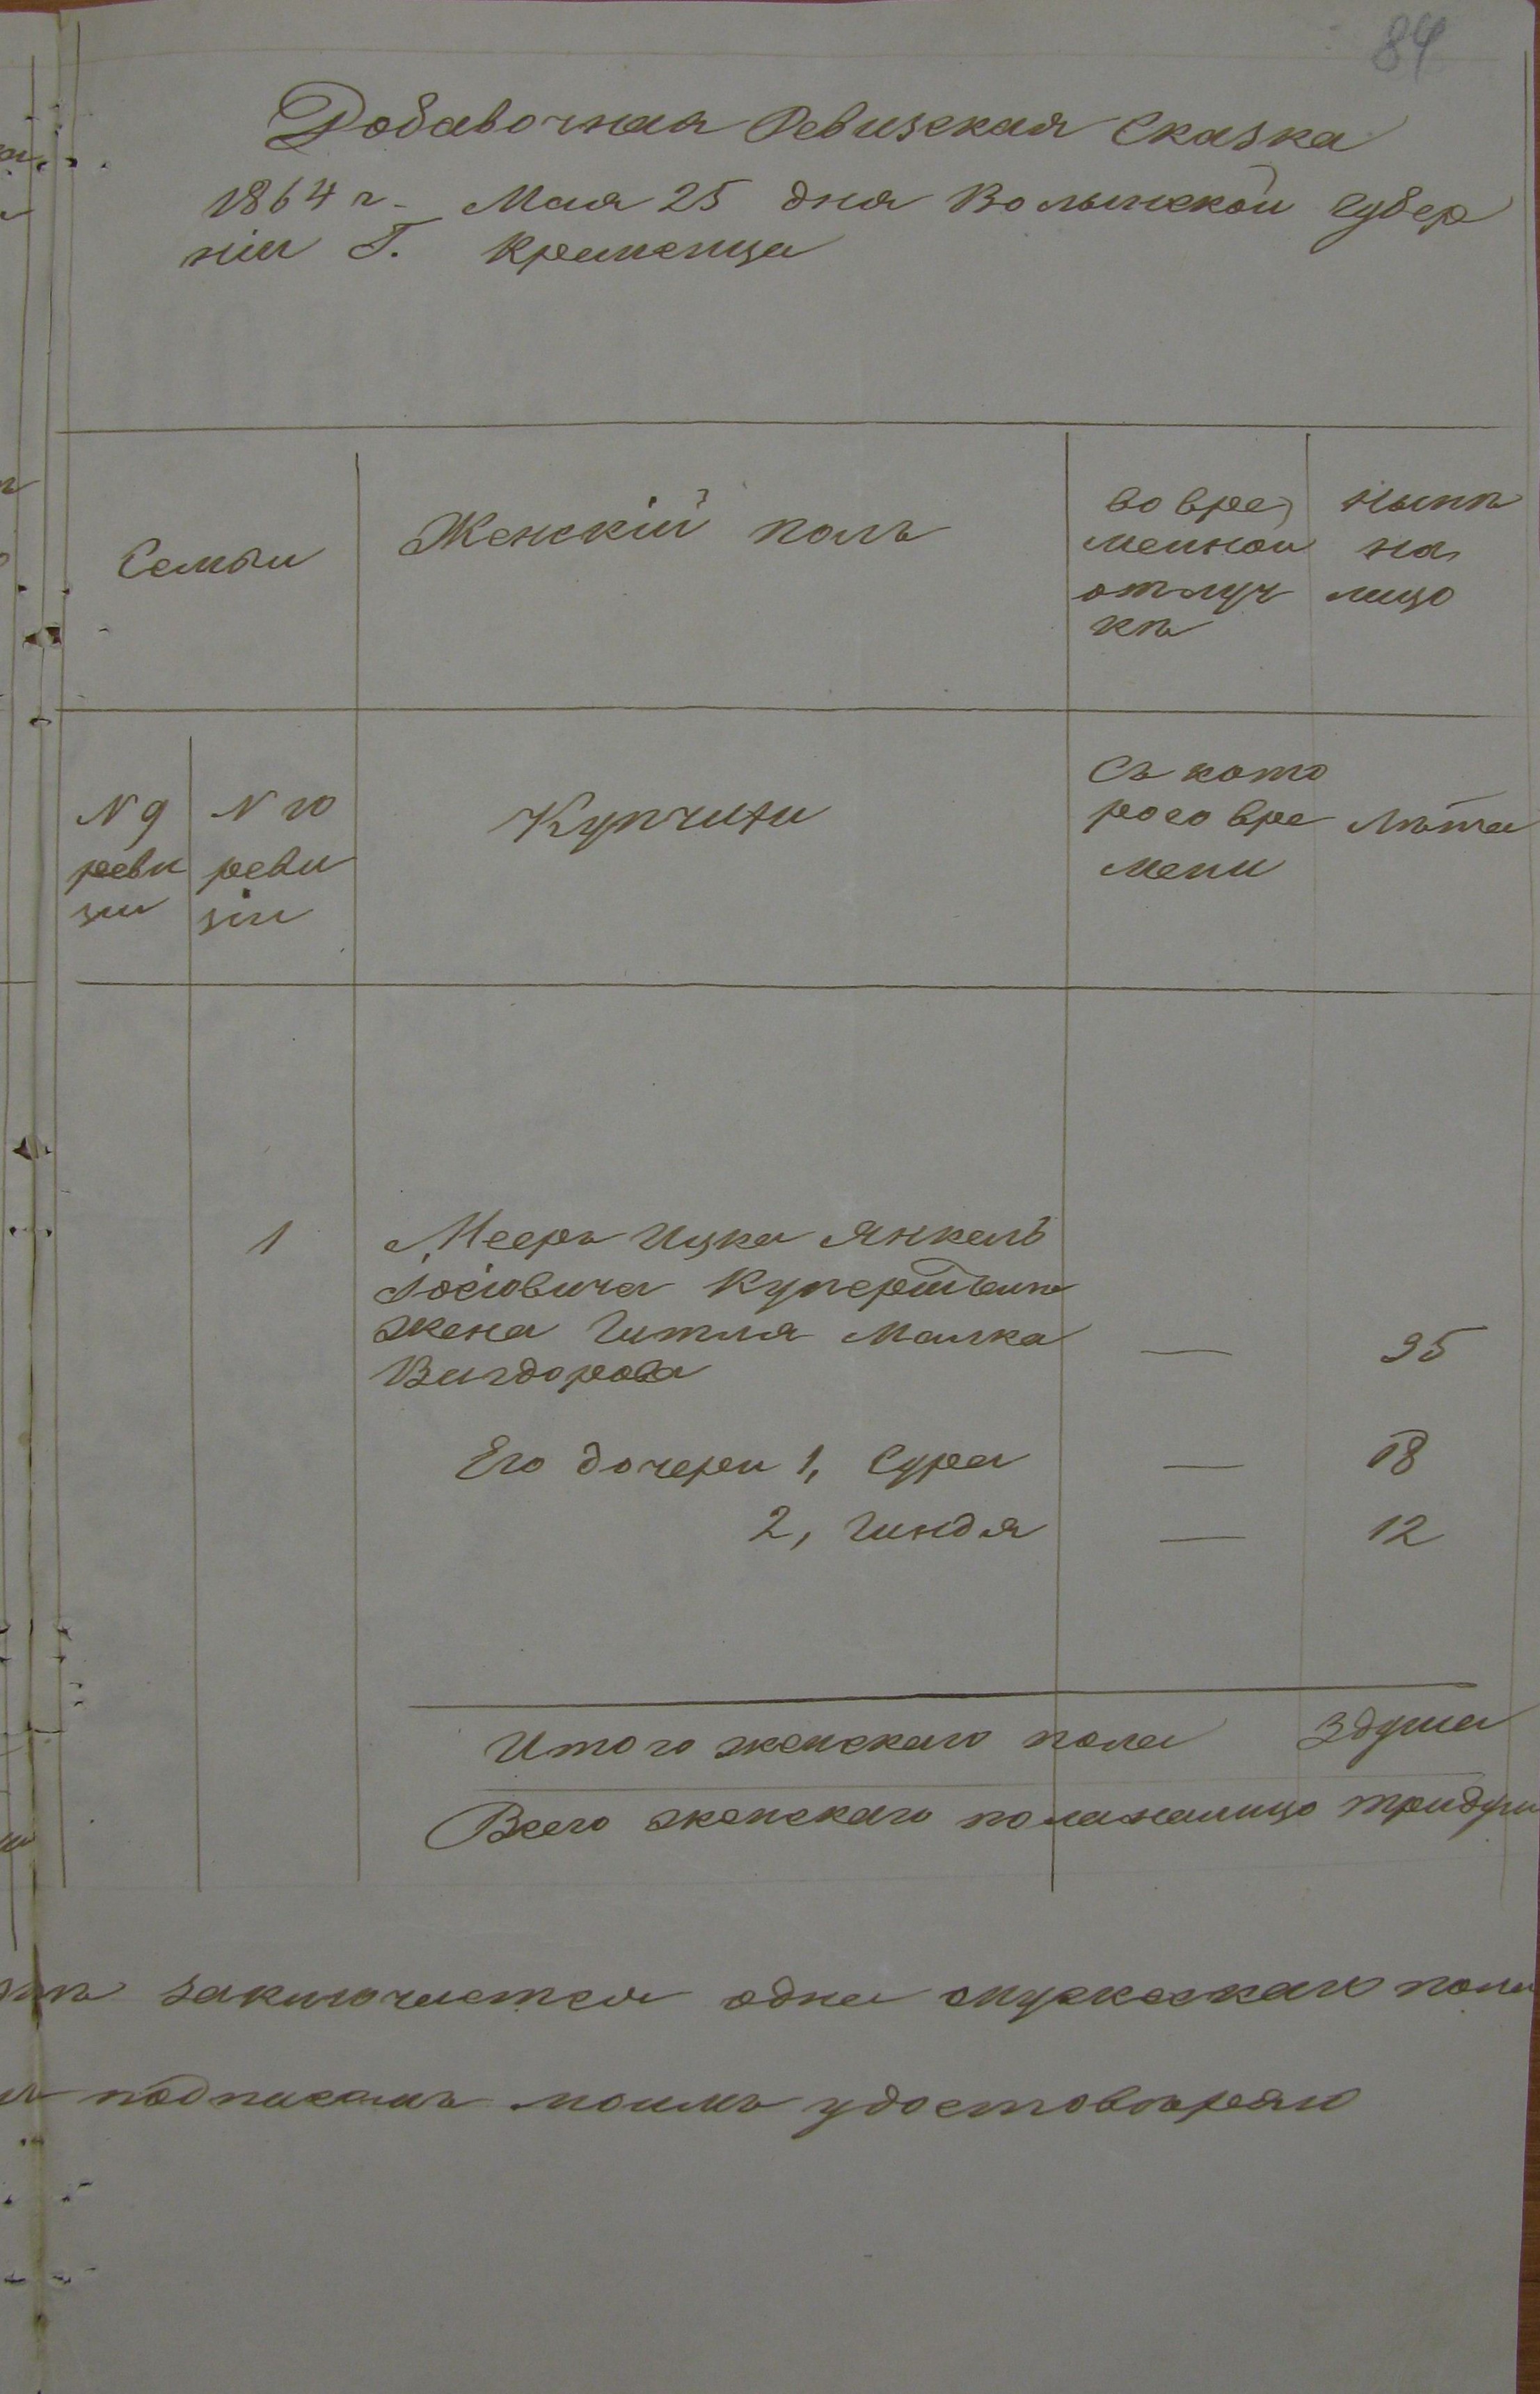 84
Добавочная Ревизская Сказка
1864 г. Мая 25 дня Волынской Губер
ніи Г. Кременца
Семьи
Женскій полъ
во вре
менной
отлуч
кѣ
нынѣ
на
лицо
N 9
реви
зіи
N 10
реви
зіи
Купчихи
Съ кото
рого вре
мени
Лѣта
1
Меера Ицка Янкель
Іосіовича Куперштейна
жена Гитля Малка
Вигдорова — 35
Его дочери 1, Сура — 18
2, Гиндя — 12
Итого женскаго пола 3 душа
Всего женскаго пола налицо три душ
заключается одна мужескаго пола
подписомъ моимъ удостовѣряю